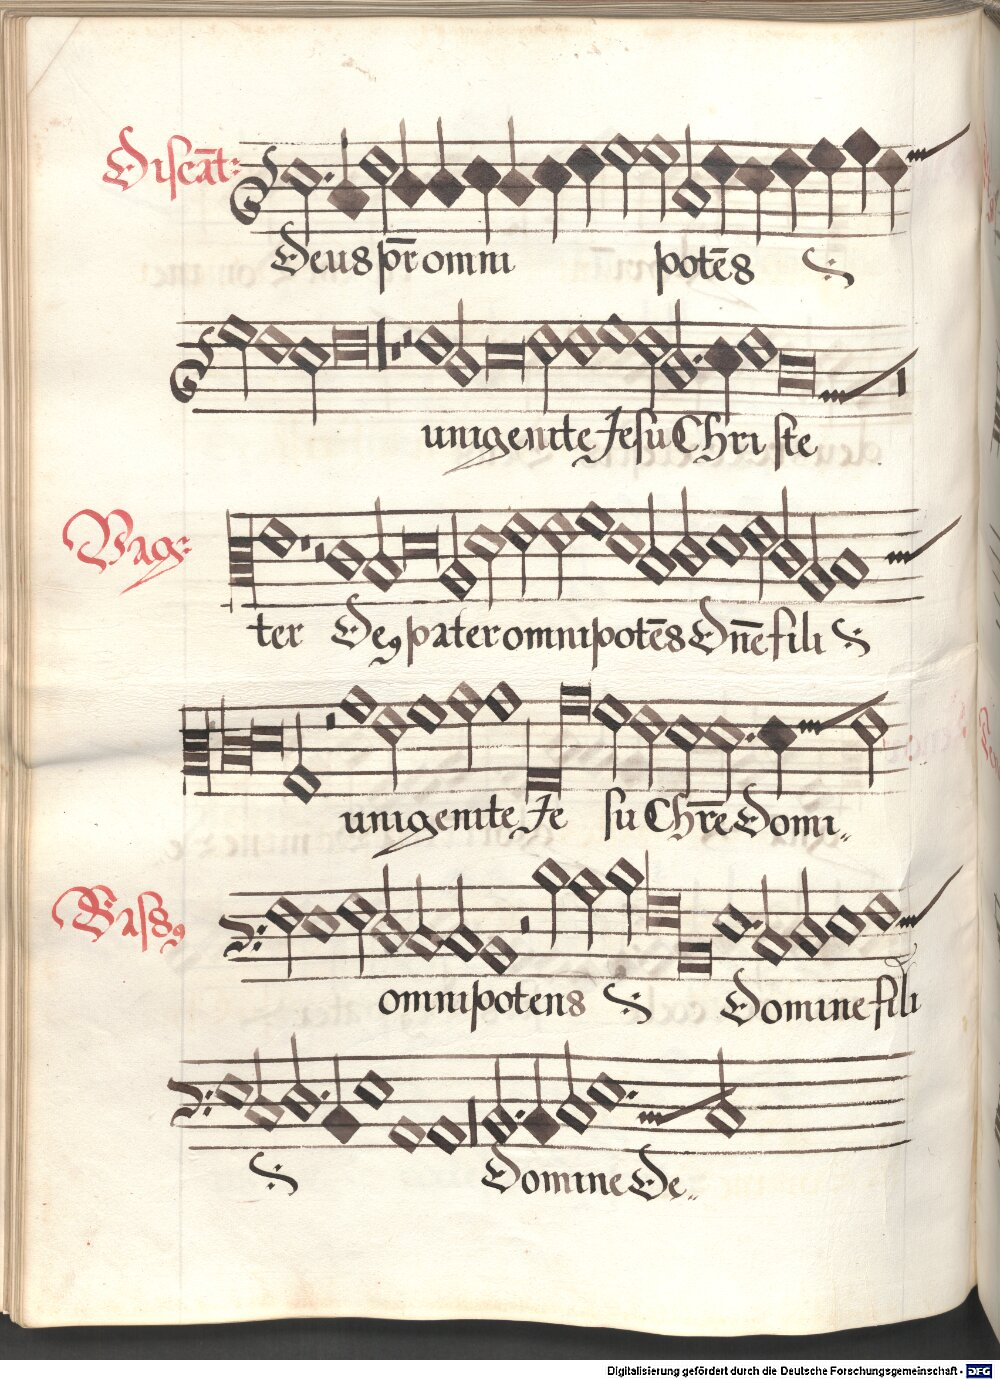 Discāt:
Deus pr̄ omni potēs
unigenite Jesu Christe
Vag:
ter Deꝰ pater omnipotēs Dn̄e fili
unigenite Je su Chr̄e Domi„
Bassꝰ
omnipotens Domine fili
Domine De„
Digitalisierung gefördert durch die Deutsche Forschungsgemeinschaft - DFG